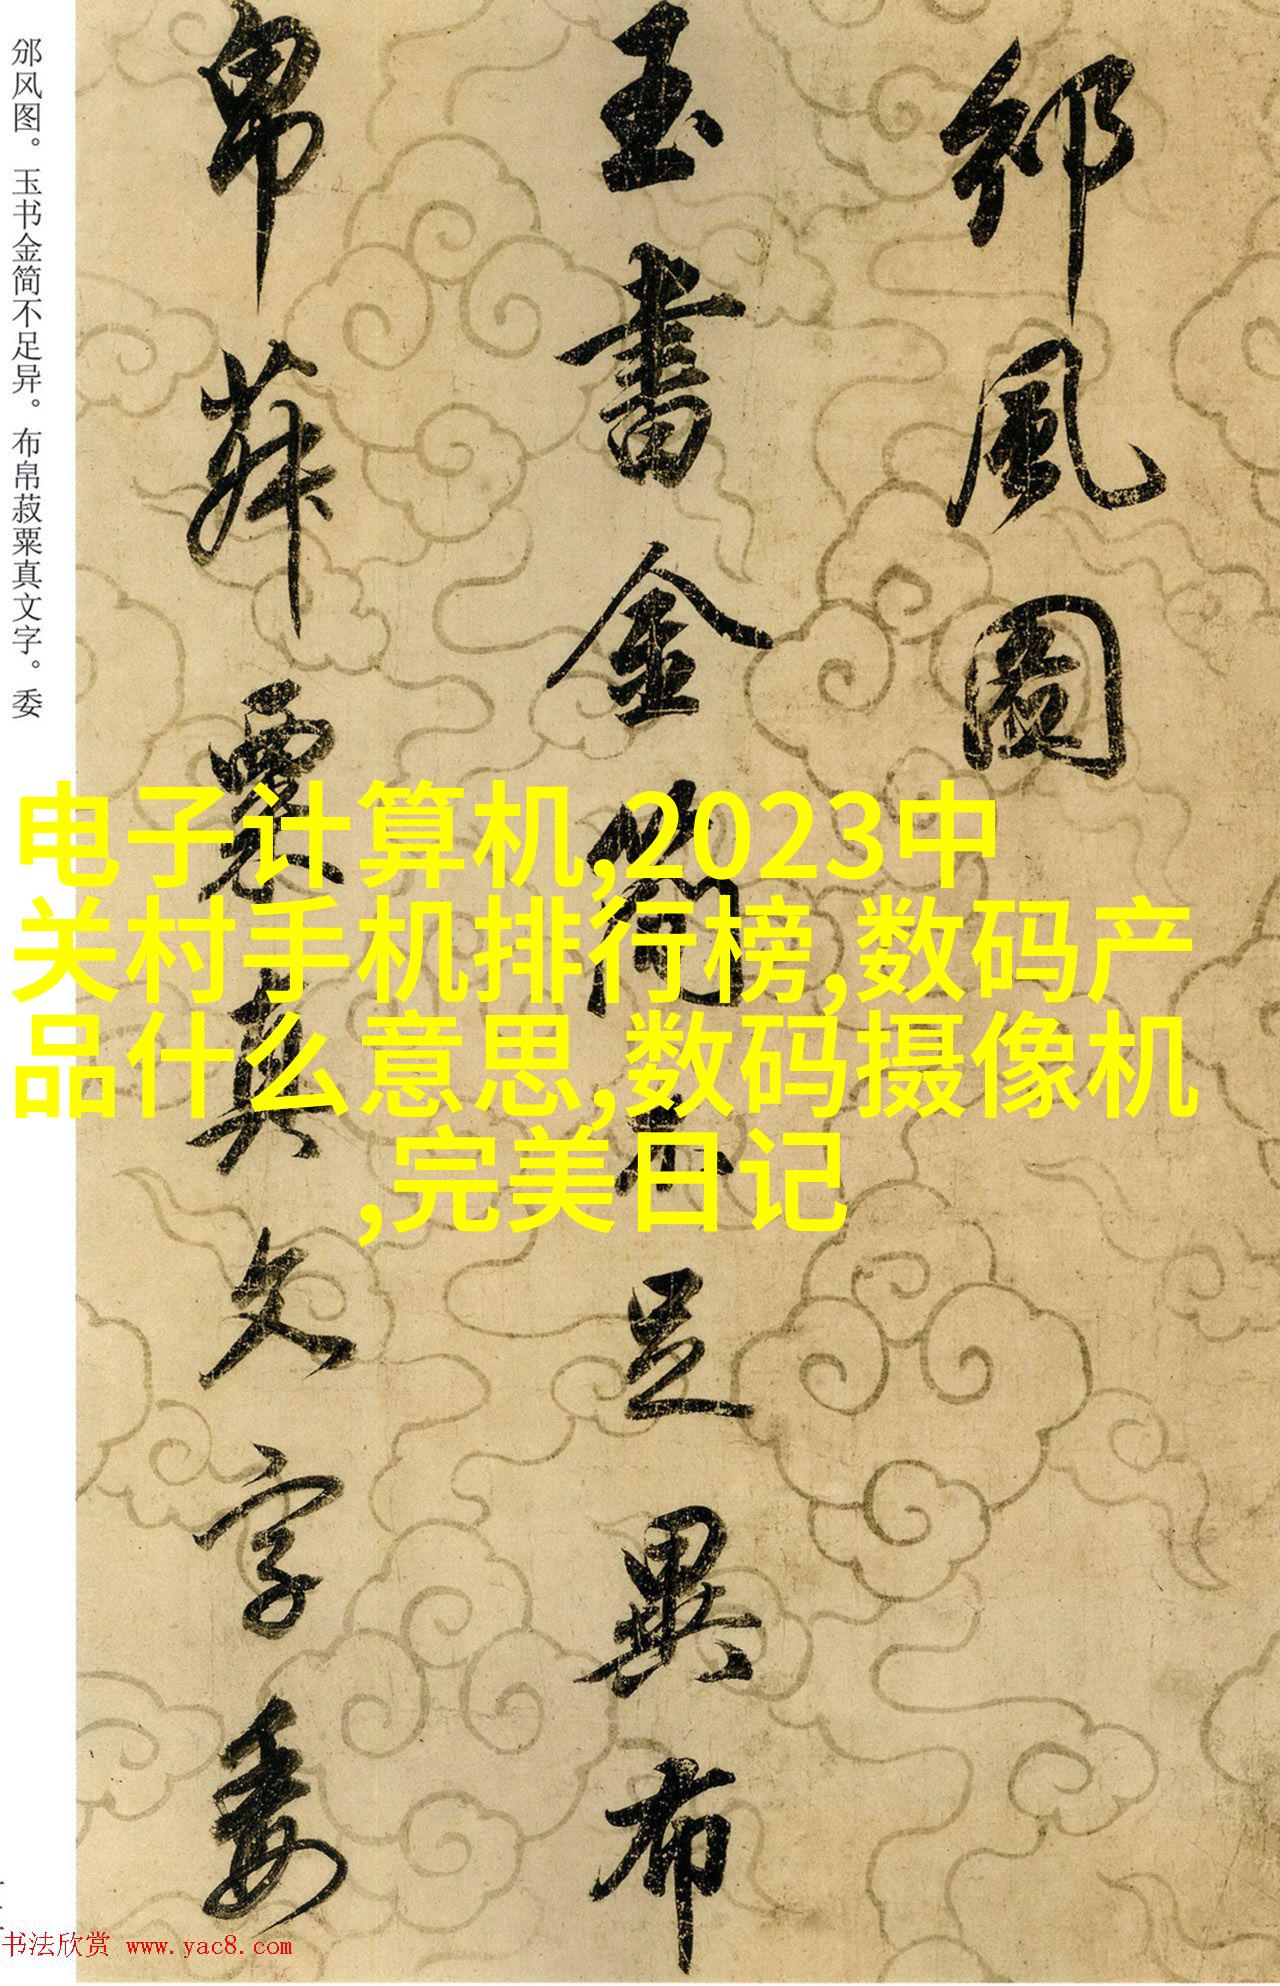 邠风图。玉书金简不足异。布帛菽粟真文字。委
邠風圖
玉書金簡不足異布
帛菽粟真文字委
电子计算机,2023中
关村手机排行榜,数码产
品什么意思,数码摄像机
,完美日记
书法欣赏 www.yac8.com